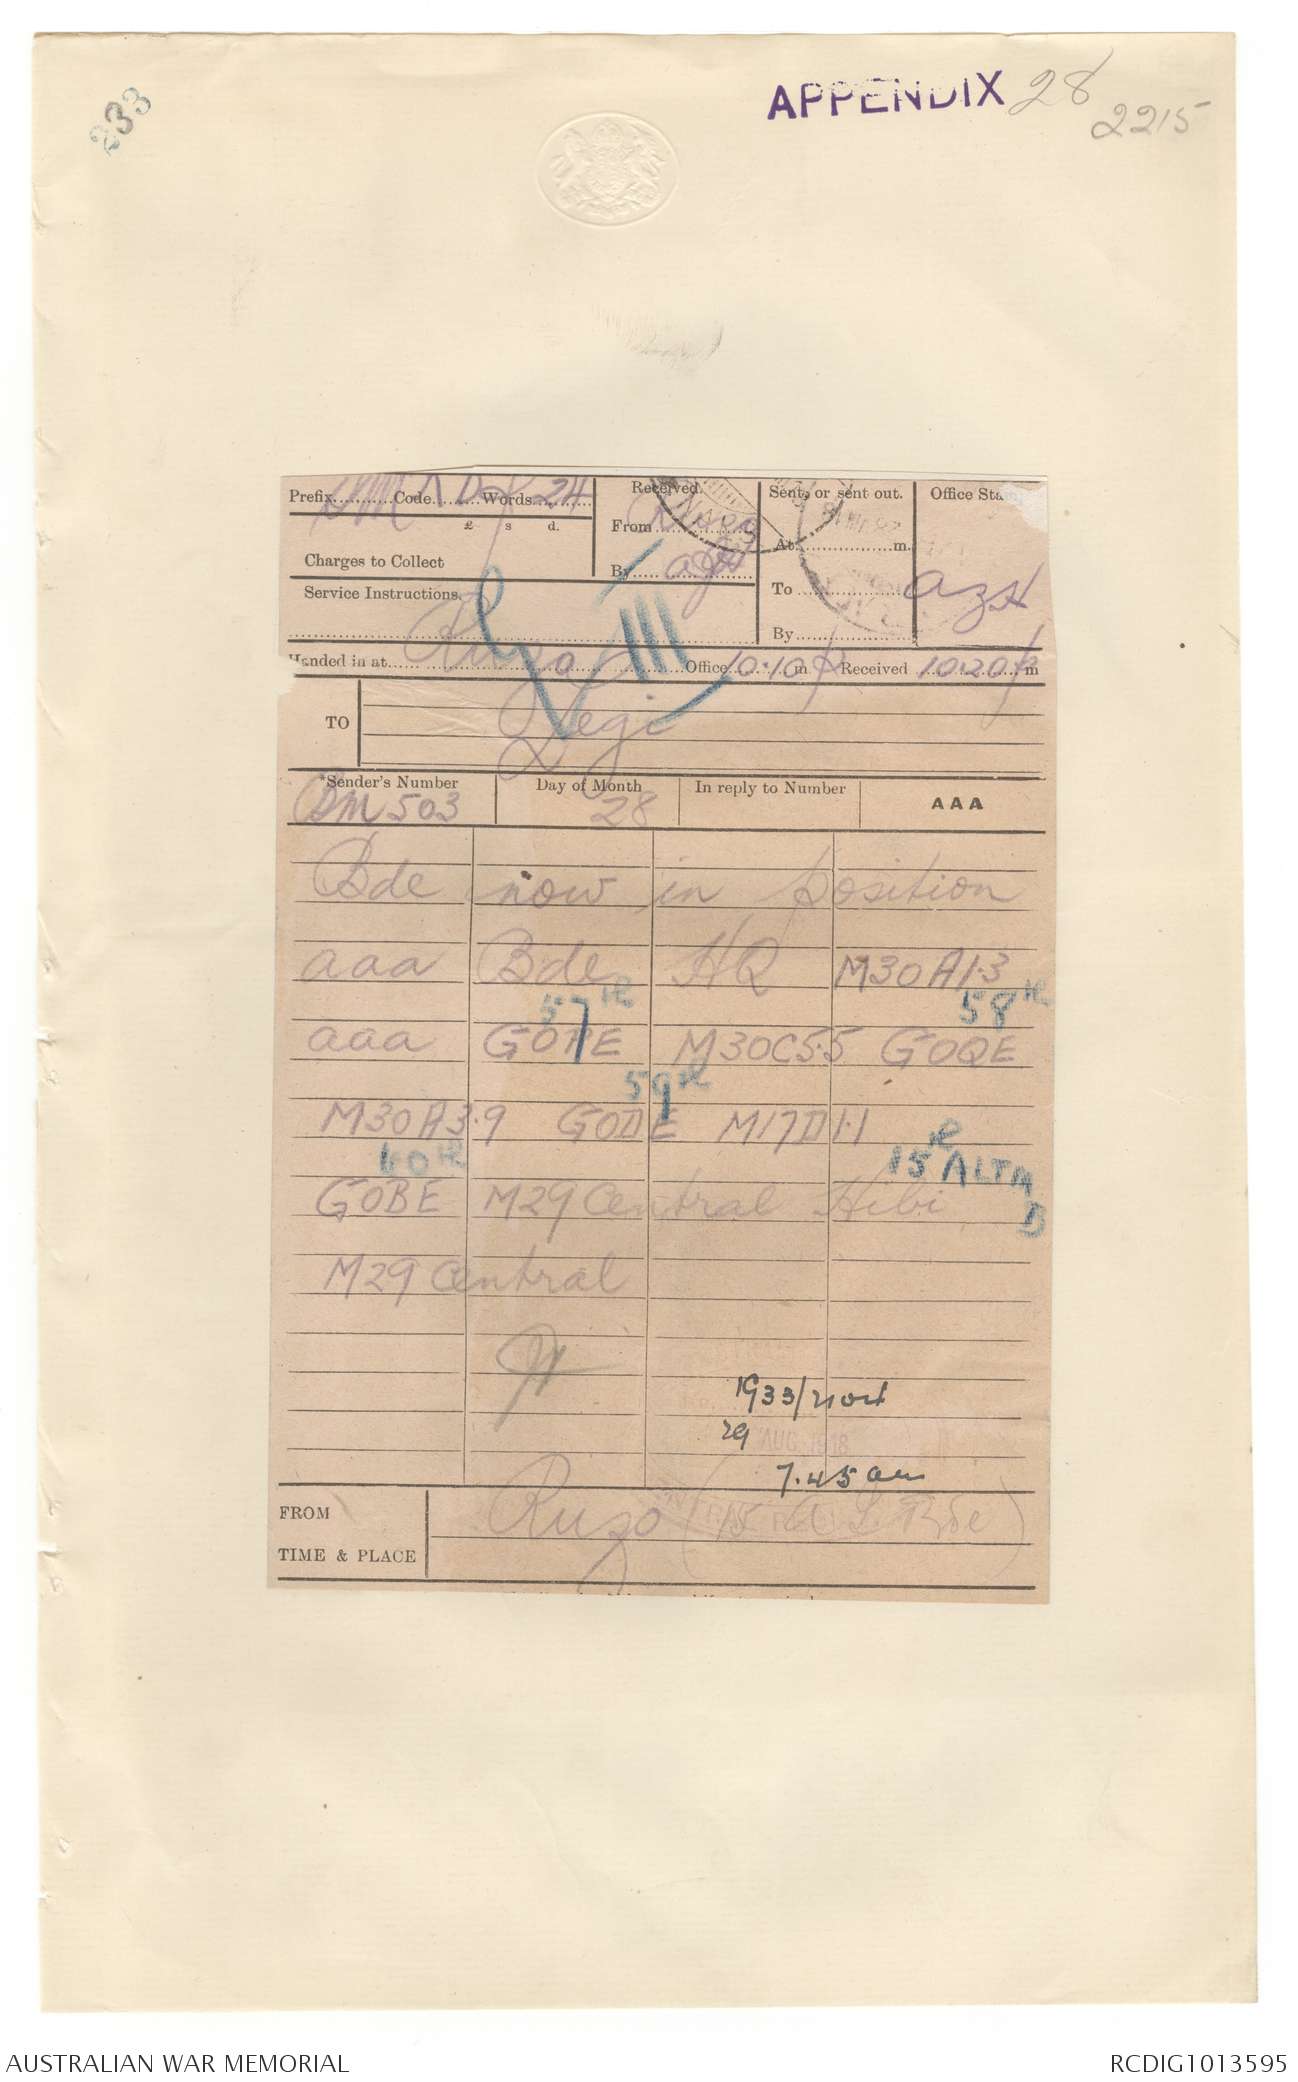 233
APPENDIX 28
2215
Prefix SM Code Words 24
£ s d.
Charges to Collect
Service Instructions.
Received.
From Ruzo
By
Sent, or sent out.
At m.
To
By
Office Sta
azH
Handed in at Ruzo Office 10.10 p m Received 10.20 p m
III
TO
Legi
*Sender's Number
BM 503
Day of Month
28
In reply to Number
AAA
Bde now in position
aaa Bde HQ M30A1.3
57th 58th
aaa GOPE M30C5.5 GOQE
59th
M30A3.9 GODE M17D1.1
60th 15th ALTM B
GOBE M29 Central Hibi
M29 Central
1933/nort
29
AUG. 1918
7.45 am
FROM
Ruzo (15 A L Bde)
TIME & PLACE
AUSTRALIAN WAR MEMORIAL
RCDIG1013595